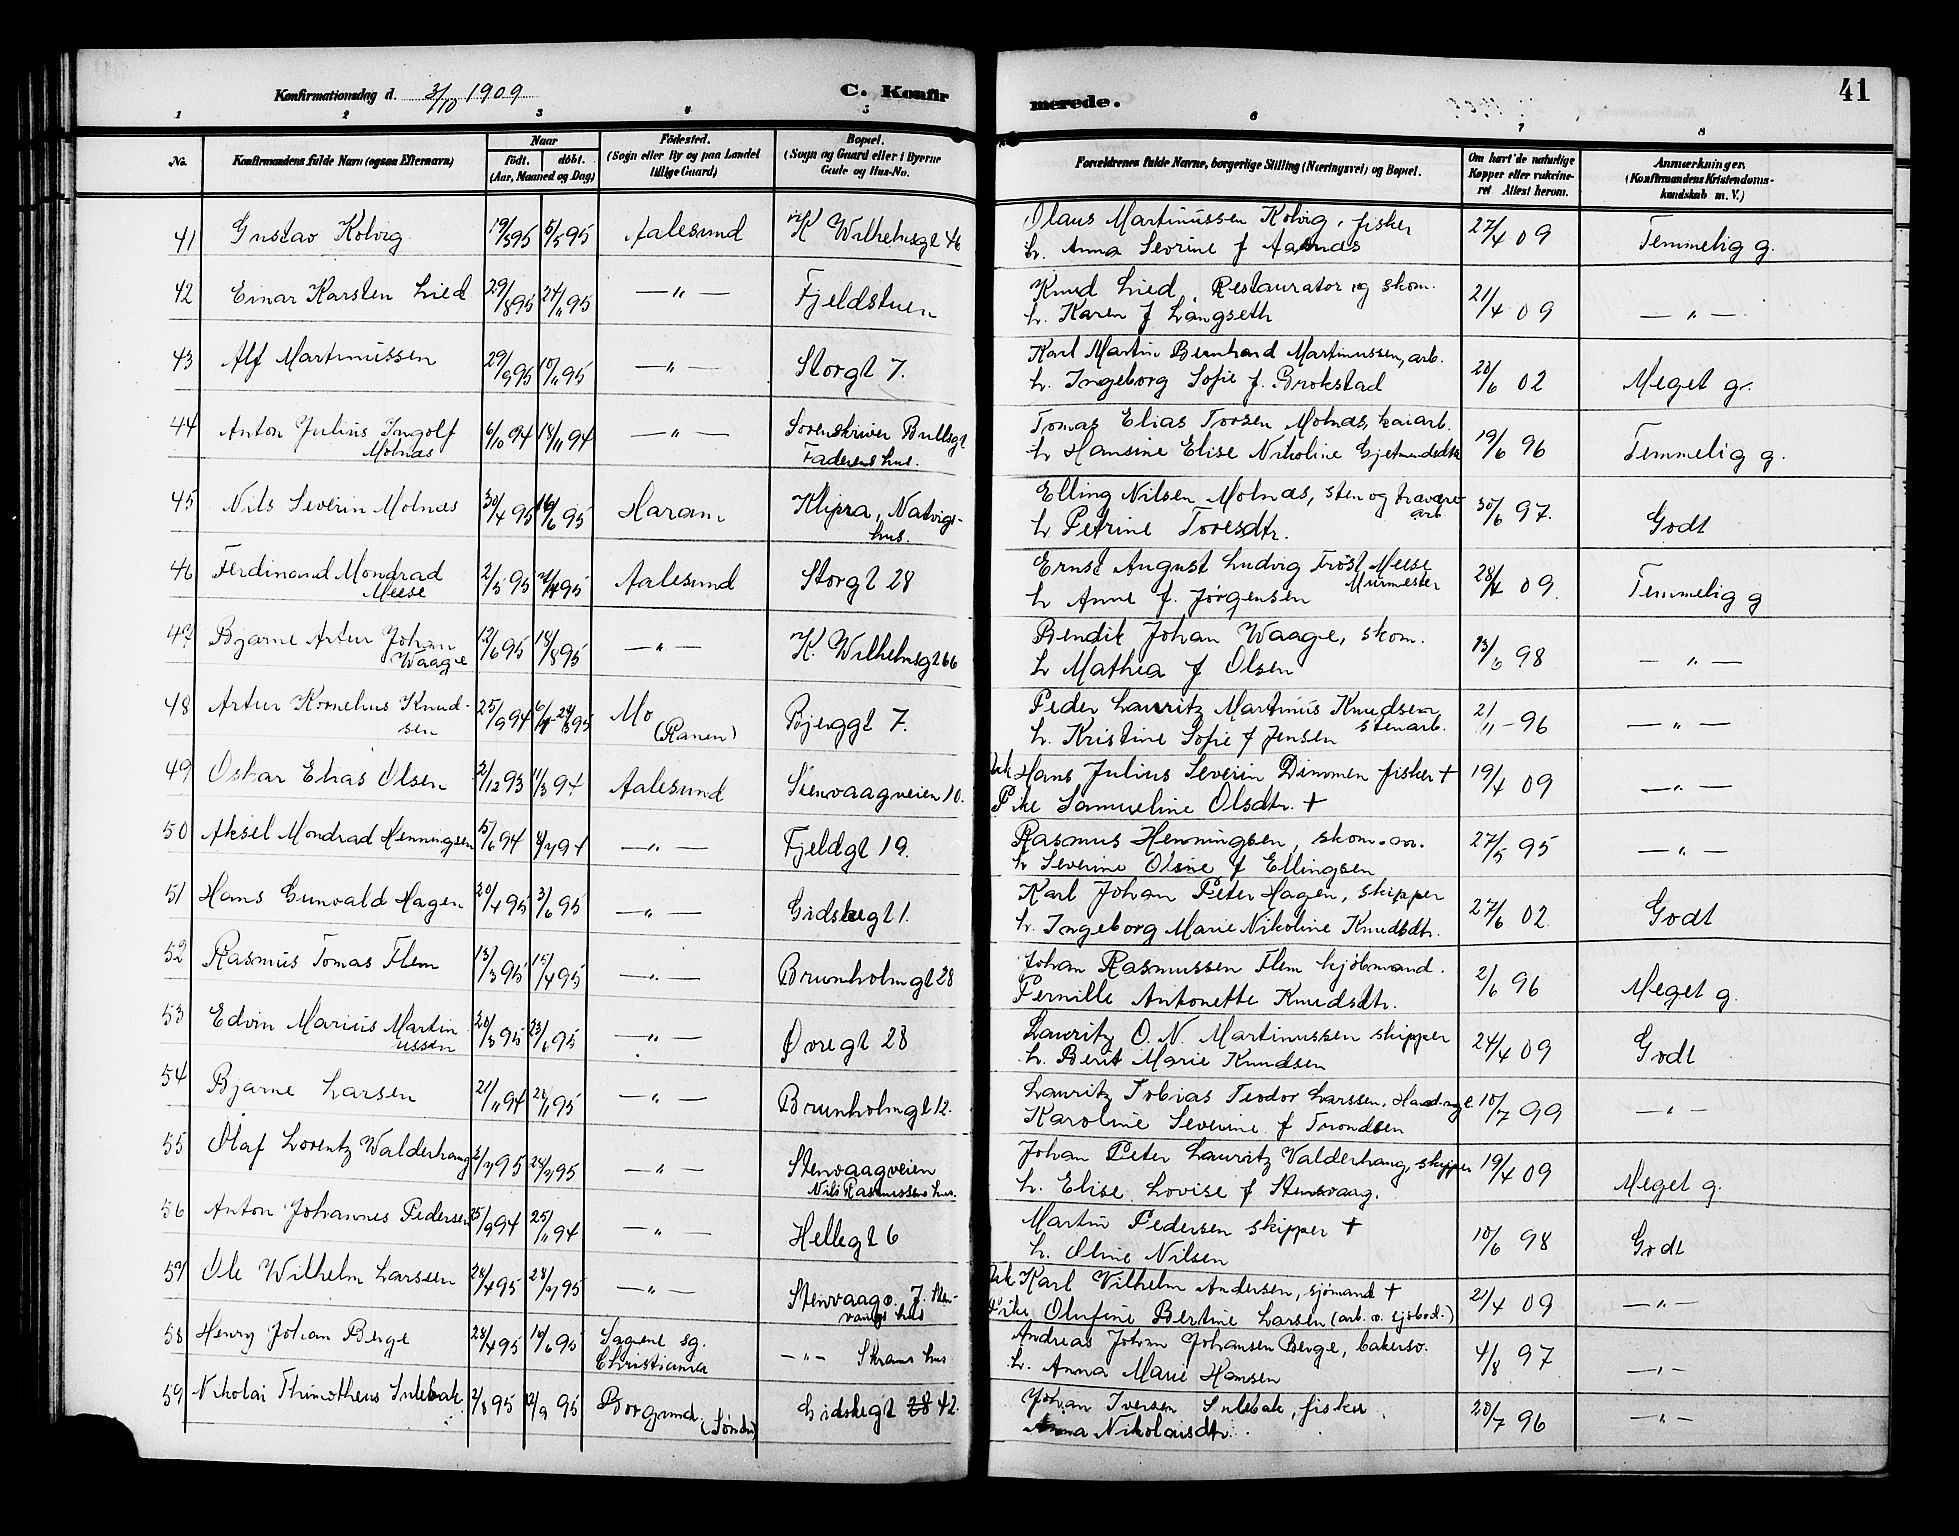 Konfirmationsdag d. 3/10 1909
C. Konfirmerede.
41
1 2 3 4 5 6 7 8
No.
Konfirmandens fulde Navn (ogsaa Efternavn)
Naar
født. døbt.
(Aar, Maaned og Dag)
Fødested.
(Sogn eller By og paa Landet
tillige Gaard)
Bopæl.
(Sogn og Gaard eller i Byerne
Gade og Hus-No.
Forældrenes fulde Navne, borgerlige Stilling (Næringsvei) og Bopæl.
Om havt de naturlige
Kopper eller vakcine-
ret Attest herom.
Anmærkninger,
(Konfirmandens Kristendoms-
kundskab m. V.)
41 Gustav Kolvig 19/3 95 5/5 95 Aalesund K Wilhelmsgt 46 Olaus Martinussen Kolvig, fisker 27/4 09 Temmelig g.
h. Anna Sevrine f Aasnæs
42 Einar Karsten Lied 29/8 95 24/11 95 —"— Fjeldstuen Knud Lied, Restaurator og skom. 21/4 09 —"—
h. Karen f Langseth
43 Alf Martinussen 29/9 95 10/11 95 —"— Storgt 7. Karl Martin Bernhard Martinussen, arb. 20/6 02 Meget g.
h. Ingeborg Sofie f. Brokstad
44 Anton Julius Ingolf 6/10 94 18/11 94 —"— Sorenskriver Bullsgt Tomas Elias Torsen Molnæs, kaiarb. 19/6 96 Temmelig g.
Molnæs Faderens hus. h Hansine Elise Nikoline Gjetmundsdtr
45 Nils Severin Molnæs 30/4 95 16/6 95 Haram Klipra, Natvigs- Elling Nilsen Molnæs, sten og travare 30/6 97. Godt
hus. arb.
h Petrine Toresdtr.
46 Ferdinand Mondrad 2/3 95 Aalesund Storgt 28 Ernst August Ludvig Tröst Meese 28/4 09. Temmelig g
Meese Murmester
h Anne f. Jørgensen
47 Bjarne Artur Johan 12/6 95 18/8 95 —"— K. Wilhelmsgt 66 Bendik Johan Waage, skom. 13/6 98 —"—
Waage h Mathea f Olsen
48 Artur Kornelius Knud- 25/9 94 Mo Bjerggt 7. Peder Lauritz Martinus Knudsen 21/11 - 96 —"—
sen (Ranen) stenarb.
h. Kristine Sofie f Jensen
49 Oskar Elias Olsen 2/12 93 11/3 94 Aalesund Stenvaagveien 10. Uk Hans Julius Severin Dimmen fisker † 19/4 09 —"—
Pike Samueline Olsdtr. †
50 Aksel Mondrad Henningsen 15/6 94 94 —"— Fjeldgt 19. Rasmus Henningsen, skom. 27/5 95 —"—
h Severine Oline f Ellingsen
51 Hans Gunvald Hagen 20/4 95 3/6 95 —"— Gidskegt 1. Karl Johan Peter Hagen, skipper 27/6 02 Godt
h. Ingeborg Marie Nikoline Knudsdtr.
52 Rasmus Tomas Flem 13/3 95 15/4 95 —"— Brunholmgt 28 Johan Rasmussen Flem kjøbmand. 2/6 96 Meget g.
Pernille Antonette Knudsdtr.
53 Edvin Marius Martin 20/3 95 23/6 95 —"— Øvregt 28 Lauritz O. N. Martinussen skipper 24/4 09 Godt
ussen h. Berit Marie Knudsen
54 Bjarne Larsen 21/11 94 95 —"— Brunholmgt 12. Lauritz Tobias Teodor Larssen, 10/7 99 —"—
Karoline Severine f Trondsen
55 Olaf Lorentz Walderhaug 95 95 —"— Stenvaagveien Johan Peter Lauritz Valderhaug, skipper 19/4 09 Meget g.
Nils Rasmussens hus. h. Elise Lovise f Stensvaag.
56 Anton Johannes Pedersen 25/9 94 25/11 94 —"— Hellegt 6 Martin Pedersen skipper † 10/6 98 Godt
h. Oline Nilsen
57 Ole Wilhelm Larssen 28/4 95 28/7 95 —"— Stenvaagv. 7. Sten- Uk Karl Vilhelm Andersen, sjømand † 21/4 09 —"—
vaags hus Pike Olufine Bertine Larsen (arb. o. sjøbod.)
58 Henry Johan Berge 28/4 95 16/6 95 Sagene sg. —"— Skrams hus Andreas Johan Johansen Berge, bakersv. 4/8 97 —"—
Christiania h. Anna Marie Hansen
59 Nikolai Thimotheus Sulebak 2/8 95 95 Borgund. Gidskegt 28 42. Johan Iversen Sulebak, fisker 20/7 96 —"—
(Søndm) Anna Nikolaisdtr.